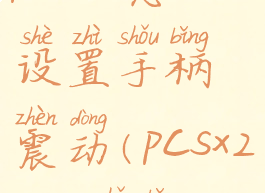 shè zhì shǒu bǐng
设置手柄
zhèn dòng
震动(PCSX2